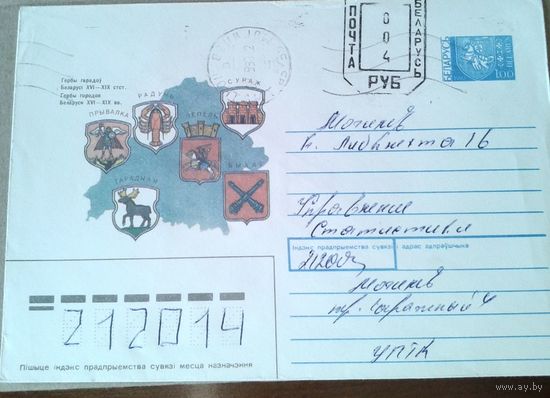 Гербы гарадоў
Беларусі XVI—XIX стст.
Гербы городов
Беларуси XVI—XIX вв.
ПРЫВАЛКА
РАДУНЬ
СУРАЖ
ЛЕПЕЛЬ
ГАРАДНАЯ
ПОЧТА
БЕЛАРУСЬ
004
РУБ
БЕЛАРУСЬ
1.00
Могилев
16
Управление
Статистики
Індэкс прадпрыемства сувязі і адрас адпраўшчыка
Могилев
УПТК
212014
Пішыце індэкс прадпрыемства сувязі месца назначэння
www.ay.by